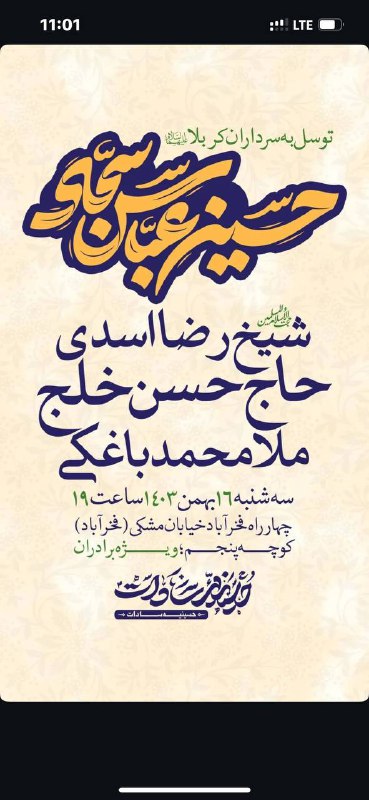 11:01
LTE
توسل به سرداران کربلا علیهم‌السلام
حسین عباس سجاد
حجت‌الاسلام والمسلمین
شیخ رضا اسدی
حاج حسن خلج
ملا محمد باغکی
سه شنبه ۱۶ بهمن ۱۴۰۳ ساعت ۱۹
چهارراه فخرآباد خیابان مشکی (فخرآباد)
کوچه پنجم؛ ویژه برادران
حسینیه سادات